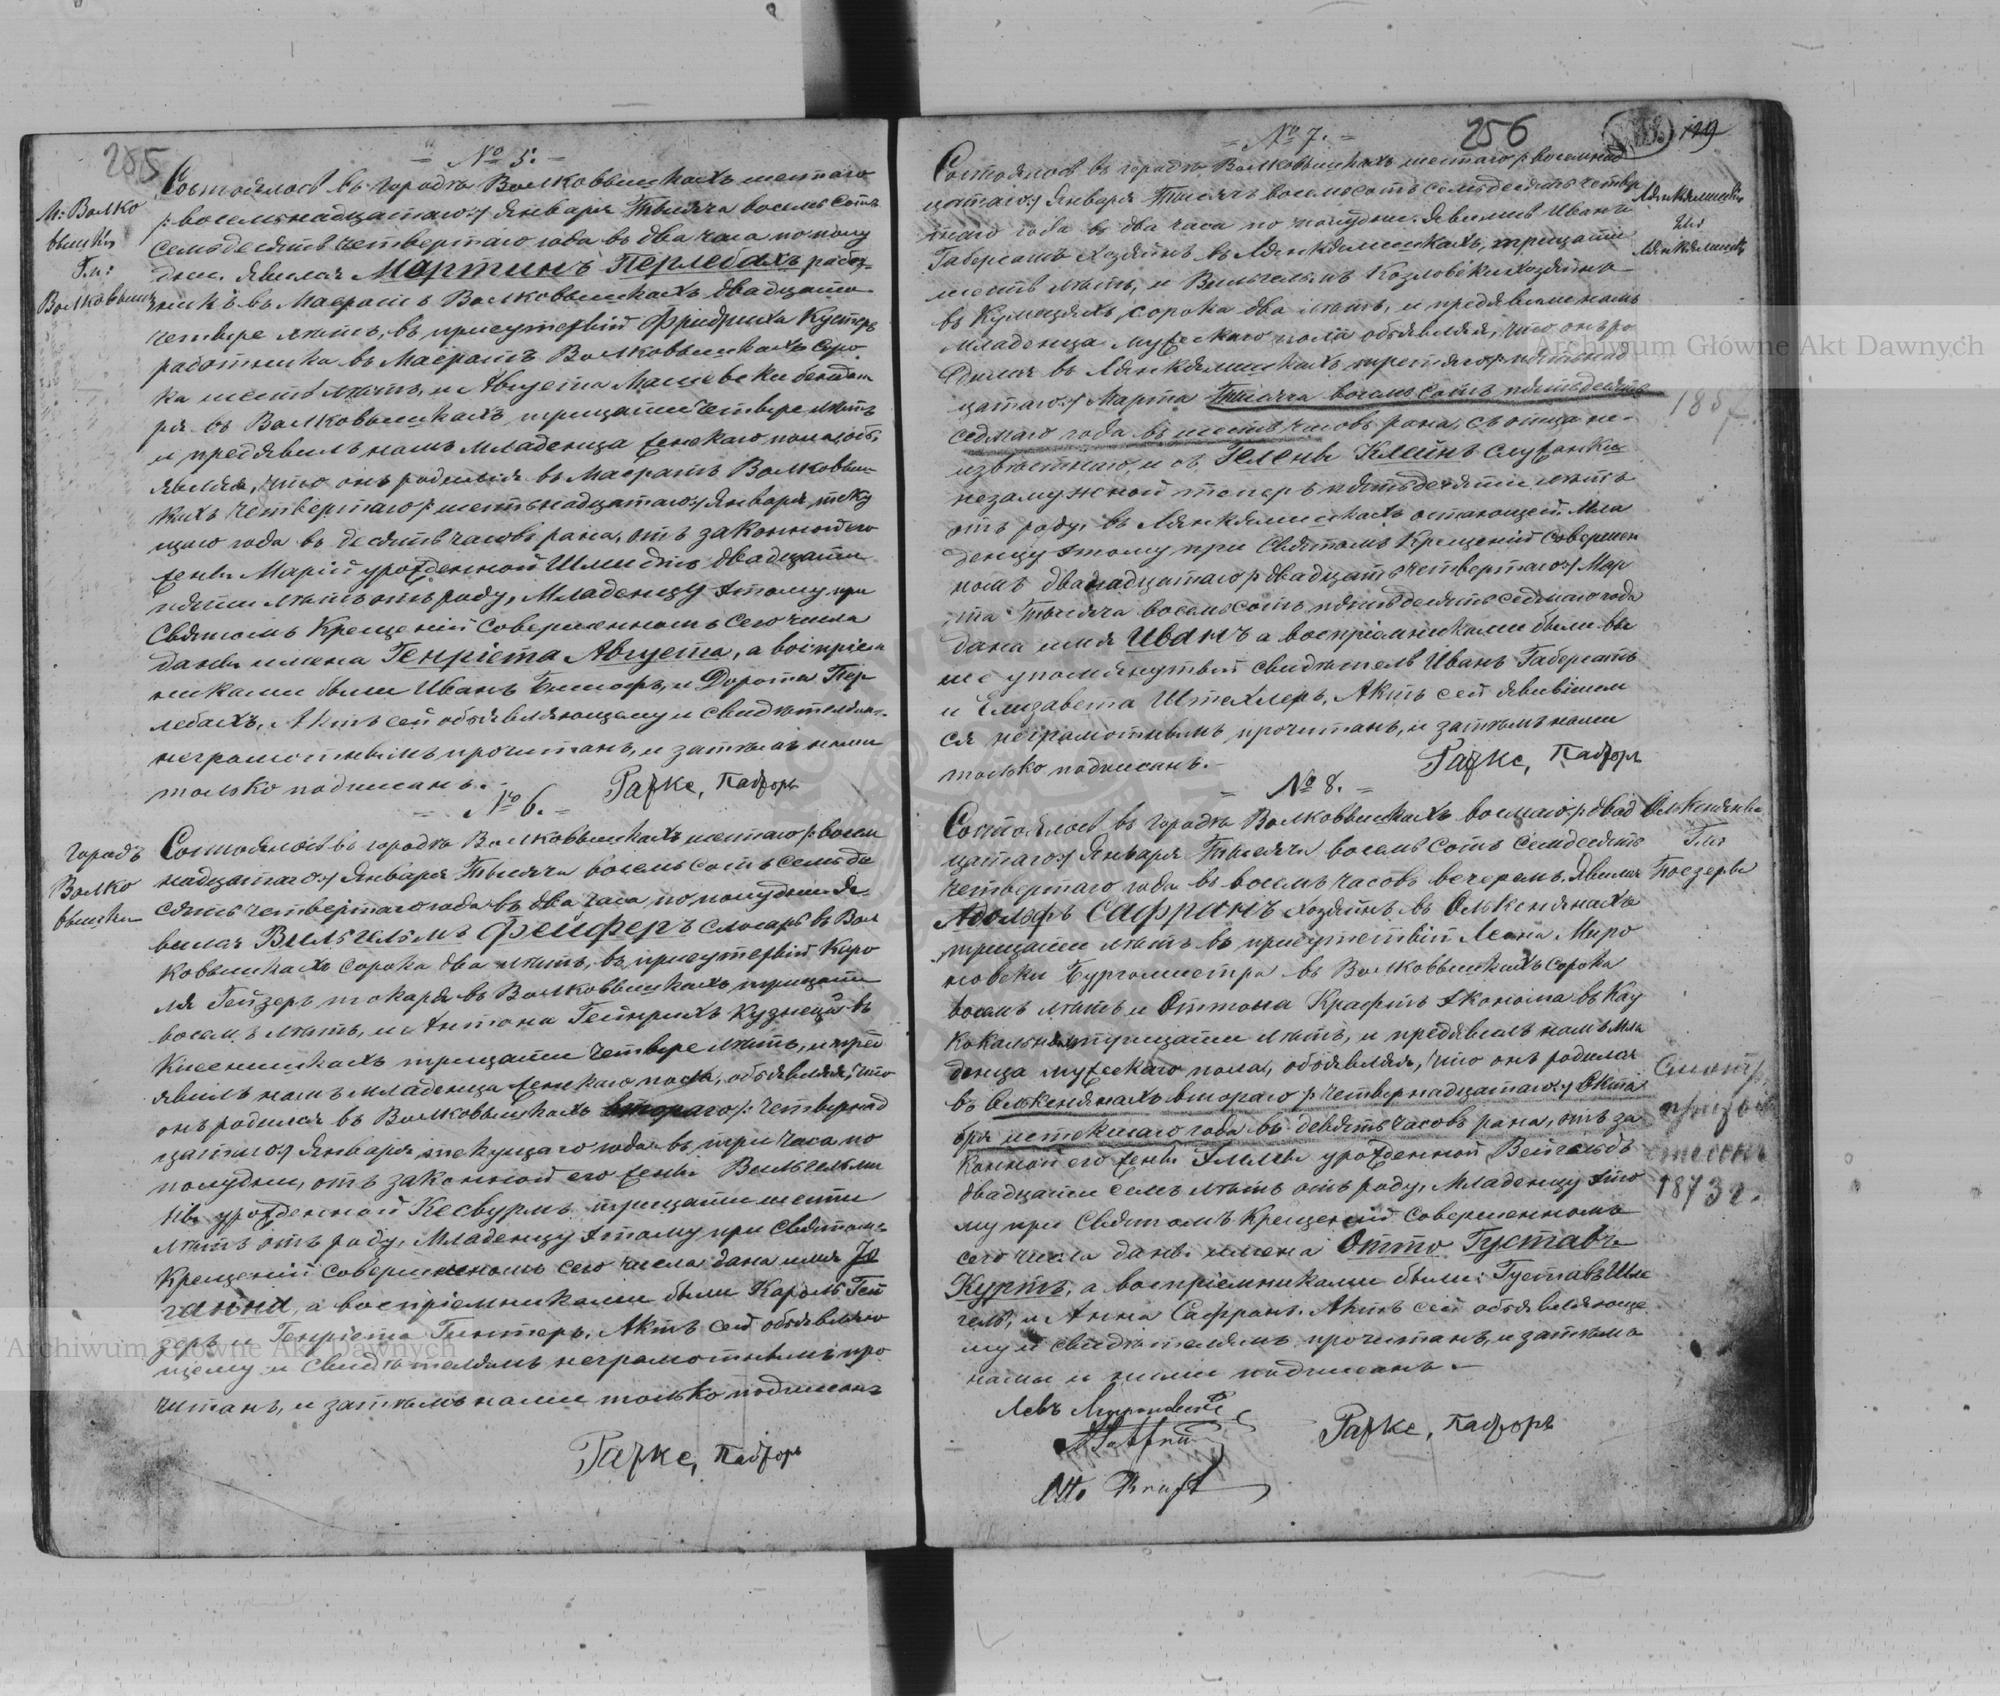 205
= № 5. =
М: Волко
вышки
Гм:
Волковышки
Состоялось въ городѣ Волковышкахъ шестаго
/: восемьнадцатаго :/ Января Тысяча восемь сотъ
семьдесятъ четвертаго года въ два часа по полу
дни. Явился Мартинъ Перлебахъ работ-
никъ въ Маіратѣ Волковышкахъ двадцати
четыре лѣтъ, въ присутствіи Фридриха Кустеръ
работника въ Маіратѣ Волковышкахъ соро
ка шесть лѣтъ, и Августа Машевски
въ Волковышкахъ тридцати четыре лѣтъ
и предъявилъ намъ младенца женскаго пола, объ
являя, что онъ родился въ Маіратѣ Волковыш
кахъ четвертаго /: шестьнадцатаго :/ Января теку
щаго года въ десять часовъ рана, отъ законной его
жены Маріи урожденной Шмидтъ двадцати
пяти лѣтъ отъ роду, Младенцу этому при
Святомъ Крещеніи совершенномъ сего числа
даны имена Генріета Августа, а воспріем
никами были Иванъ и Дорота Пер
лебахъ. Актъ сей объявляющему и свидѣтелямъ
неграмотнымъ прочитанъ, и затѣмъ нами
только подписанъ.
Рарке, Пасторъ
= № 6. =
Городъ
Волко
вышки
Состоялось въ городѣ Волковышкахъ шестаго /: восем
надцатаго :/ Января Тысяча восемь сотъ семьде
сятъ четвертаго года въ два часа по полудни Я
вился Вильгельмъ Фейферъ слесарь въ Вол
ковышкахъ сорока два лѣтъ, въ присутствіи Каро
ля Гейзеръ токаря въ Волковышкахъ тридцати
восемь лѣтъ, и Антона Гейнрихъ Кузнеца въ
тридцати четыре лѣтъ, и предъ
явилъ намъ младенца женскаго пола, объявляя, что
онъ родился въ Волковышкахъ втораго /: четырнад
цатаго :/ Января текущаго года въ три часа по
полудни, отъ законной его жены Вильгельми
ны урожденной Кесвурмъ тридцати шести
лѣтъ отъ роду, Младенцу этому при Святомъ
Крещеніи совершенномъ сего числа дана имя Іо
ганна, а воспріемниками были Кароль Гей
зеръ и Генріета Гинтеръ. Актъ сей объявляю
щему и свидѣтелямъ неграмотнымъ про
читанъ, и затѣмъ нами только подписанъ
Рарке, Пасторъ
256
129
= № 7. =
Состоялось въ городѣ Волковышкахъ шестаго /: восемнад
цатаго :/ Января Тысяча восемь сотъ семьдесятъ четвер
таго года въ два часа по полудни. Явились Иванъ
Габерсатъ хозяинъ въ Лянкялишкахъ, тридцати
шесть лѣтъ, и Вильгельмъ Козловски хозяинъ
въ сорока два лѣтъ, и предъявили намъ
младенца мужескаго пола объявляя, что онъ ро
дился въ Лянкялишкахъ третяго /: пятьнад
цатаго :/ Марта Тысяча восемь сотъ пятьдесятъ
седмаго года въ шесть часовъ рана, съ отца не-
извѣстнаго, и съ Гелены Клейнъ служанки
незамужной теперь пятьдесяти лѣтъ
отъ роду въ Лянкялишкахъ остающей Мла
денцу этому при Святомъ Крещеніи совершен
номъ двадцатаго /: двадцать четвертаго :/ Мар
та Тысяча восемь сотъ пятьдесятъ седьмаго года
дана имя Иванъ а воспріемниками были вы
ше упомянутый свидѣтель Иванъ Габерсатъ
и Елизавета Штехлеръ. Актъ сей явившим
ся неграмотнымъ прочитанъ, и затѣмъ нами
только подписанъ.
Рарке, Пасторъ
Лянкялишки
Гм:
Лянкялишки
1857
= № 8. =
Состоялось въ городѣ Волковышкахъ восьмаго /: двад
цатаго :/ Января Тысяча восемь сотъ семдесятъ
четвертаго года въ восемь часовъ вечеромъ. Явился
Адольфъ Сафранъ хозяинъ въ Олькснянахъ
тридцати лѣтъ въ присутствіи Леона Миро
новски Бургомистра въ Волковышкахъ сорока
восемь лѣтъ и Оттона Крафтъ Эконома въ Кау
кокальняхъ тридцати лѣтъ, и предъявилъ намъ мла
денца мужескаго пола, объявляя, что онъ родился
въ Олькснянахъ втораго /: четвернадцатаго :/ Октя
бря истекшаго года въ девять часовъ рана, отъ за
конной его жены Эммы урожденной Вейгельдъ
двадцати семь лѣтъ отъ роду, Младенцу это
му при Святомъ Крещеніи совершенномъ
сего числа даны имена Отто Густавъ
Куртъ, а воспріемниками были: Густавъ Шле
гель, и Анна Сафранъ. Актъ сей объявляюще
му и свидѣтелямъ прочитанъ, и затѣмъ
нами и ними подписанъ.
Ольксняны
Гм:
Поезеры
1873 г.
Левъ Мироновскій
A Saffran
Otto Kraft
Рарке, Пасторъ
Archiwum Główne Akt Dawnych
Archiwum Główne Akt Dawnych